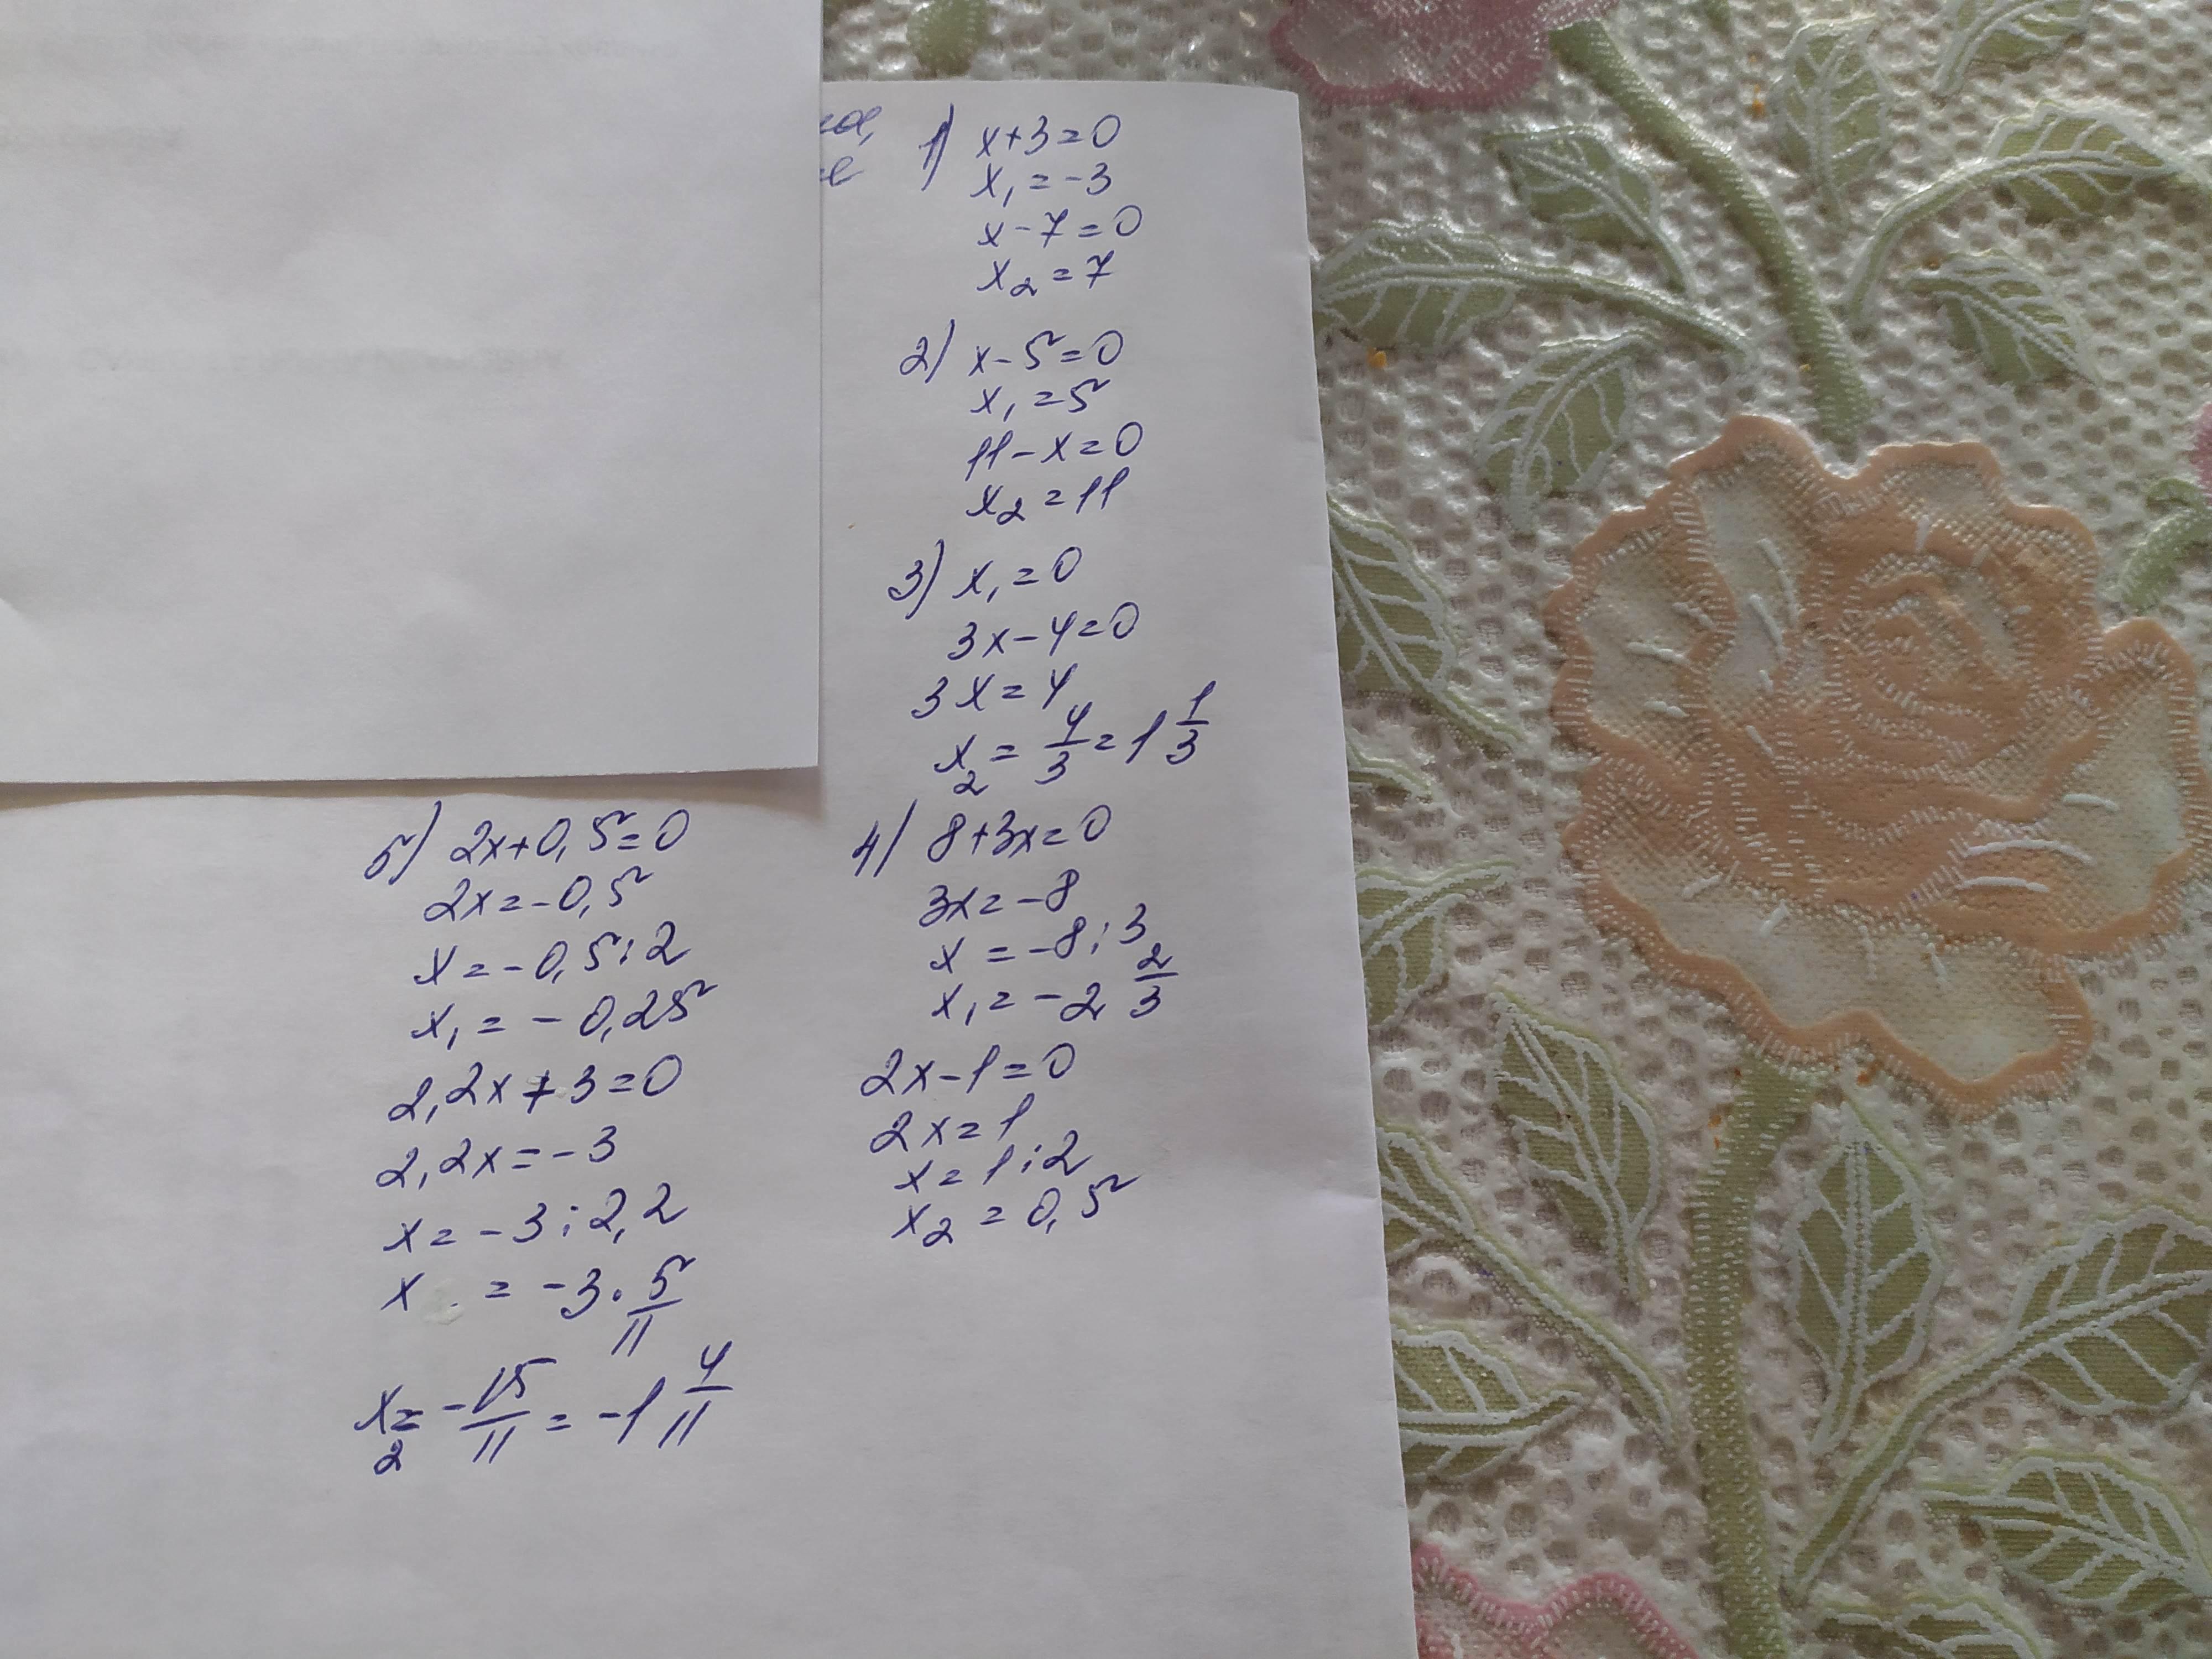 1) x+3=0
x₁=-3
x-7=0
x₂=7
2) x-5=0
x₁=5
11-x=0
x₂=11
3) x₁=0
3x-4=0
3x=4
x₂=4/3=1 1/3
4) 8+3x=0
3x=-8
x=-8:3
x₁=-2 2/3
2x-1=0
2x=1
x=1:2
x₂=0,5
5) 2x+0,5=0
2x=-0,5
x=-0,5:2
x₁=-0,25
2,2x+3=0
2,2x=-3
x=-3:2,2
x=-3·5/11
x₂=-15/11=-1 4/11